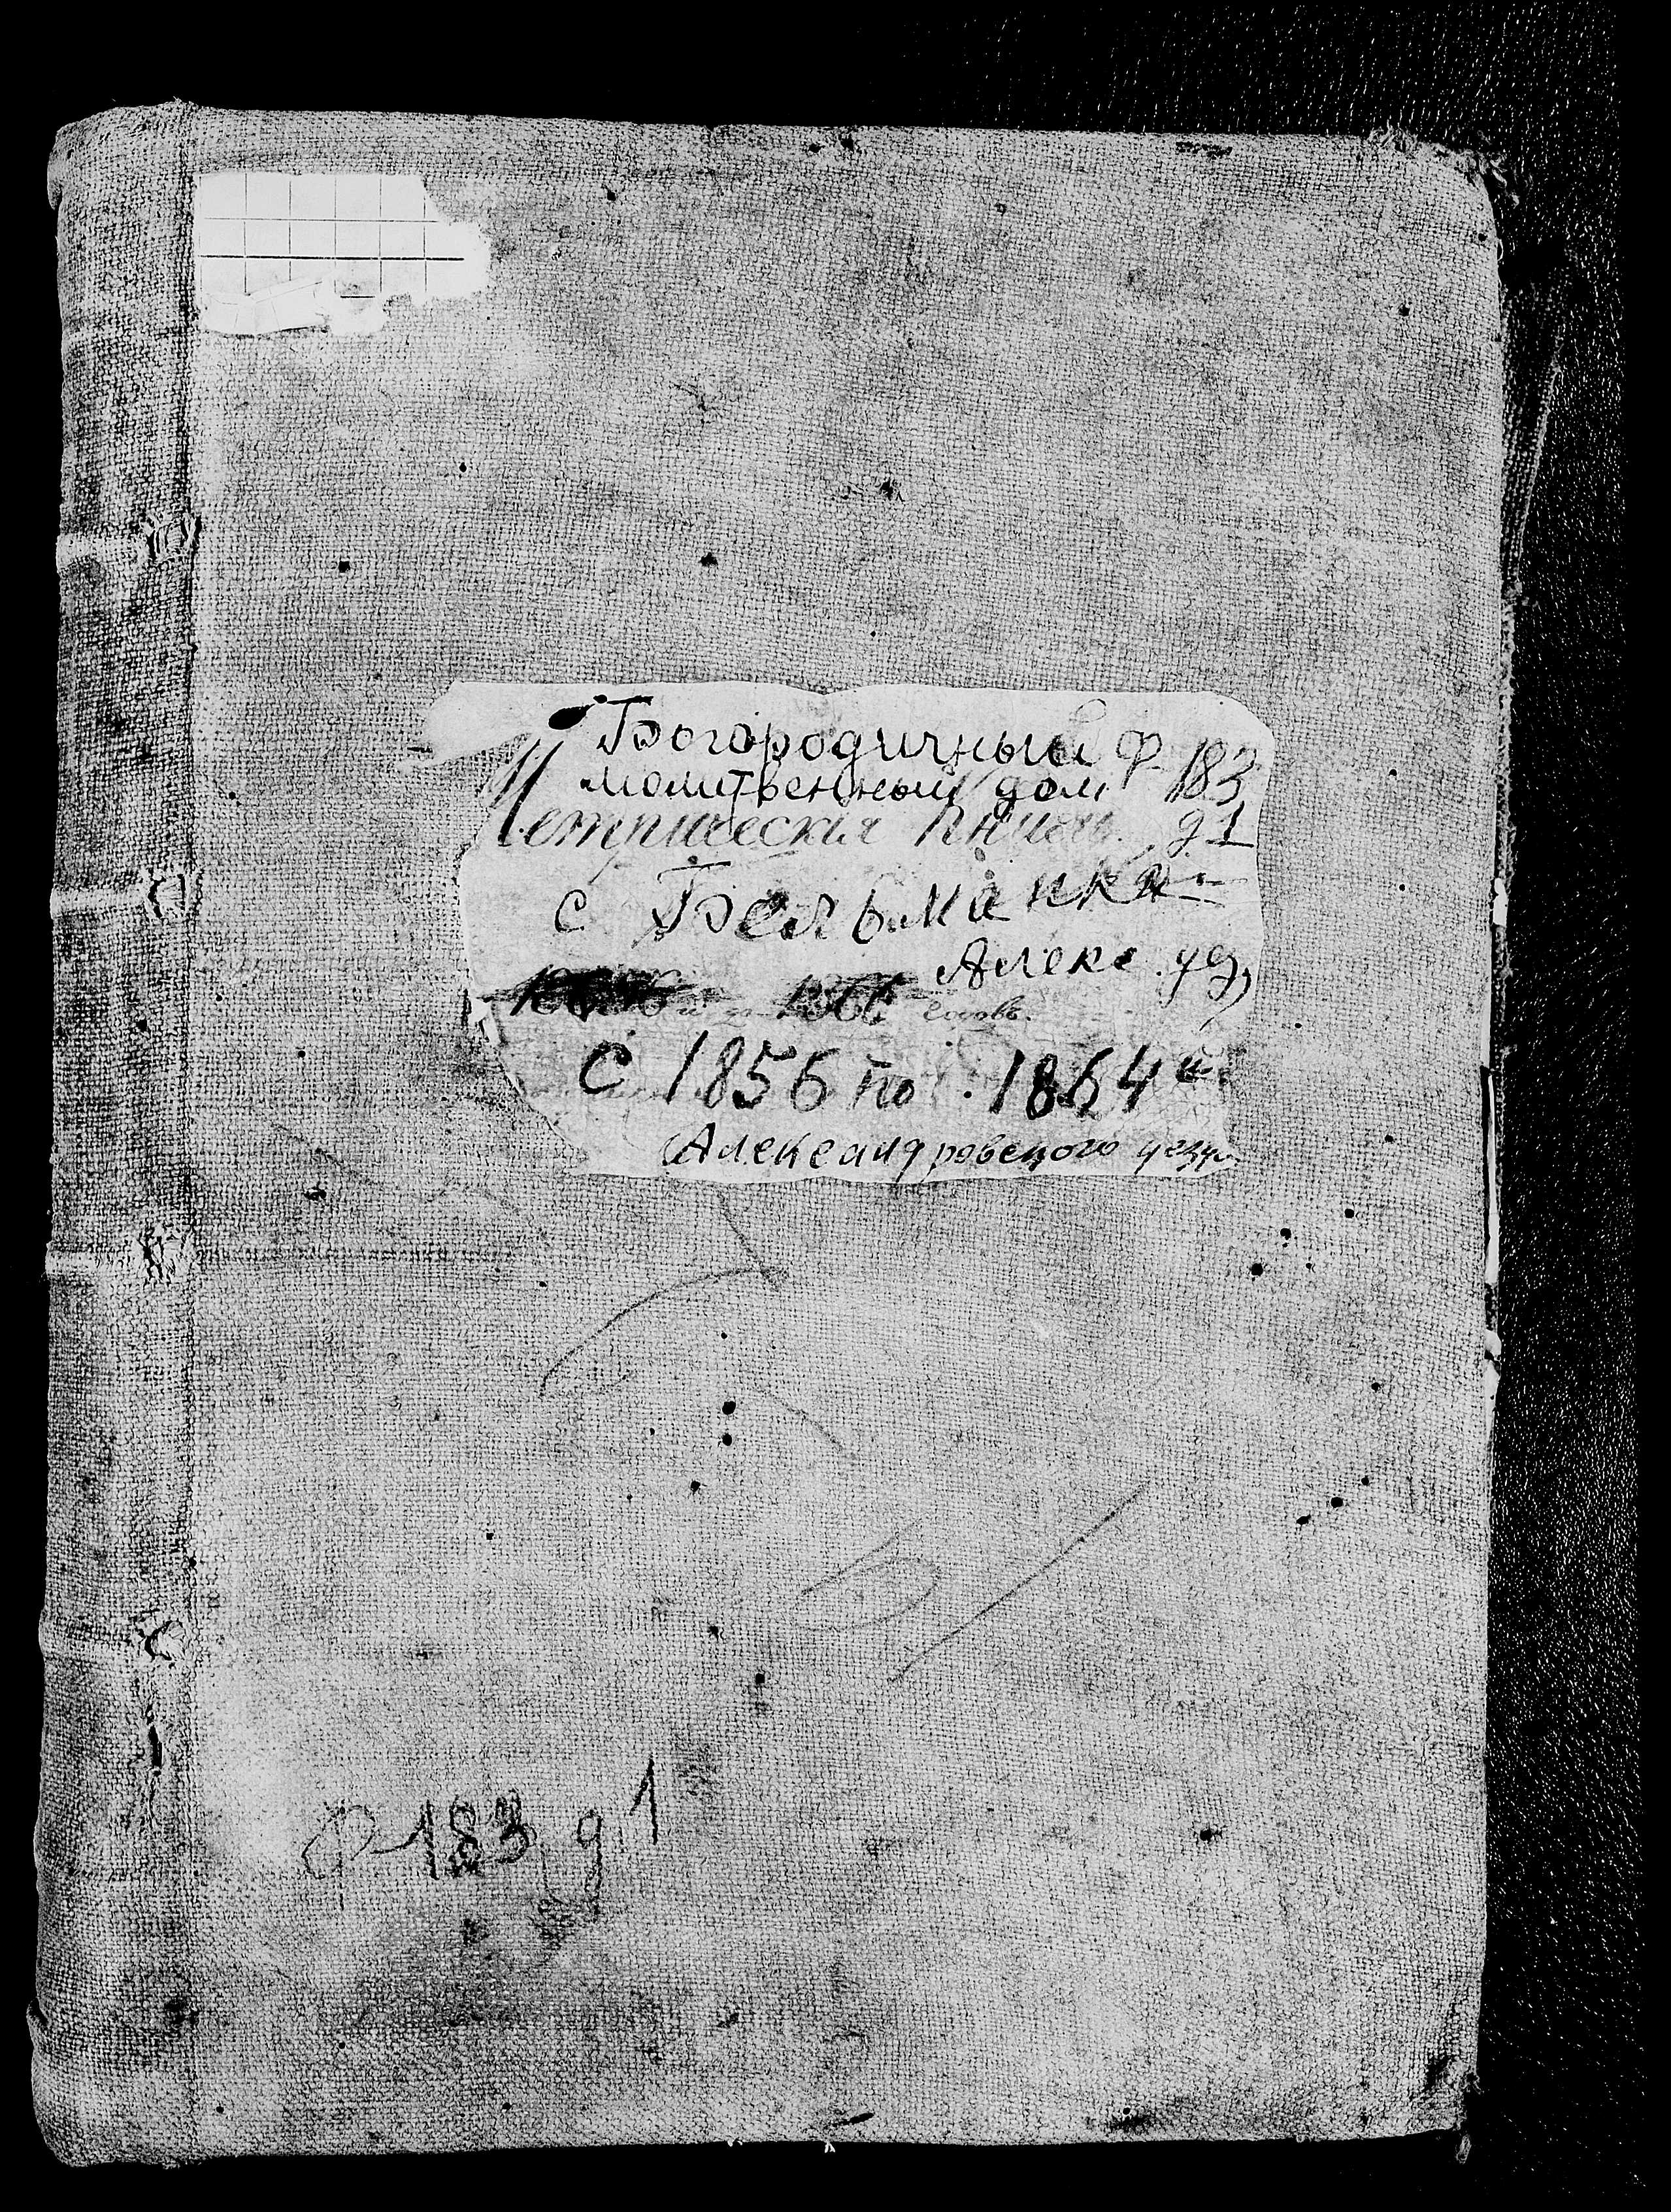 Богородичный ф 183
молитвенный дом
Метрическія книги д 1
с Бельманка
Алекс. уѣ,
годовъ.
С 1856 по 1864 й.
Александровского уезда
ф 183 д 1